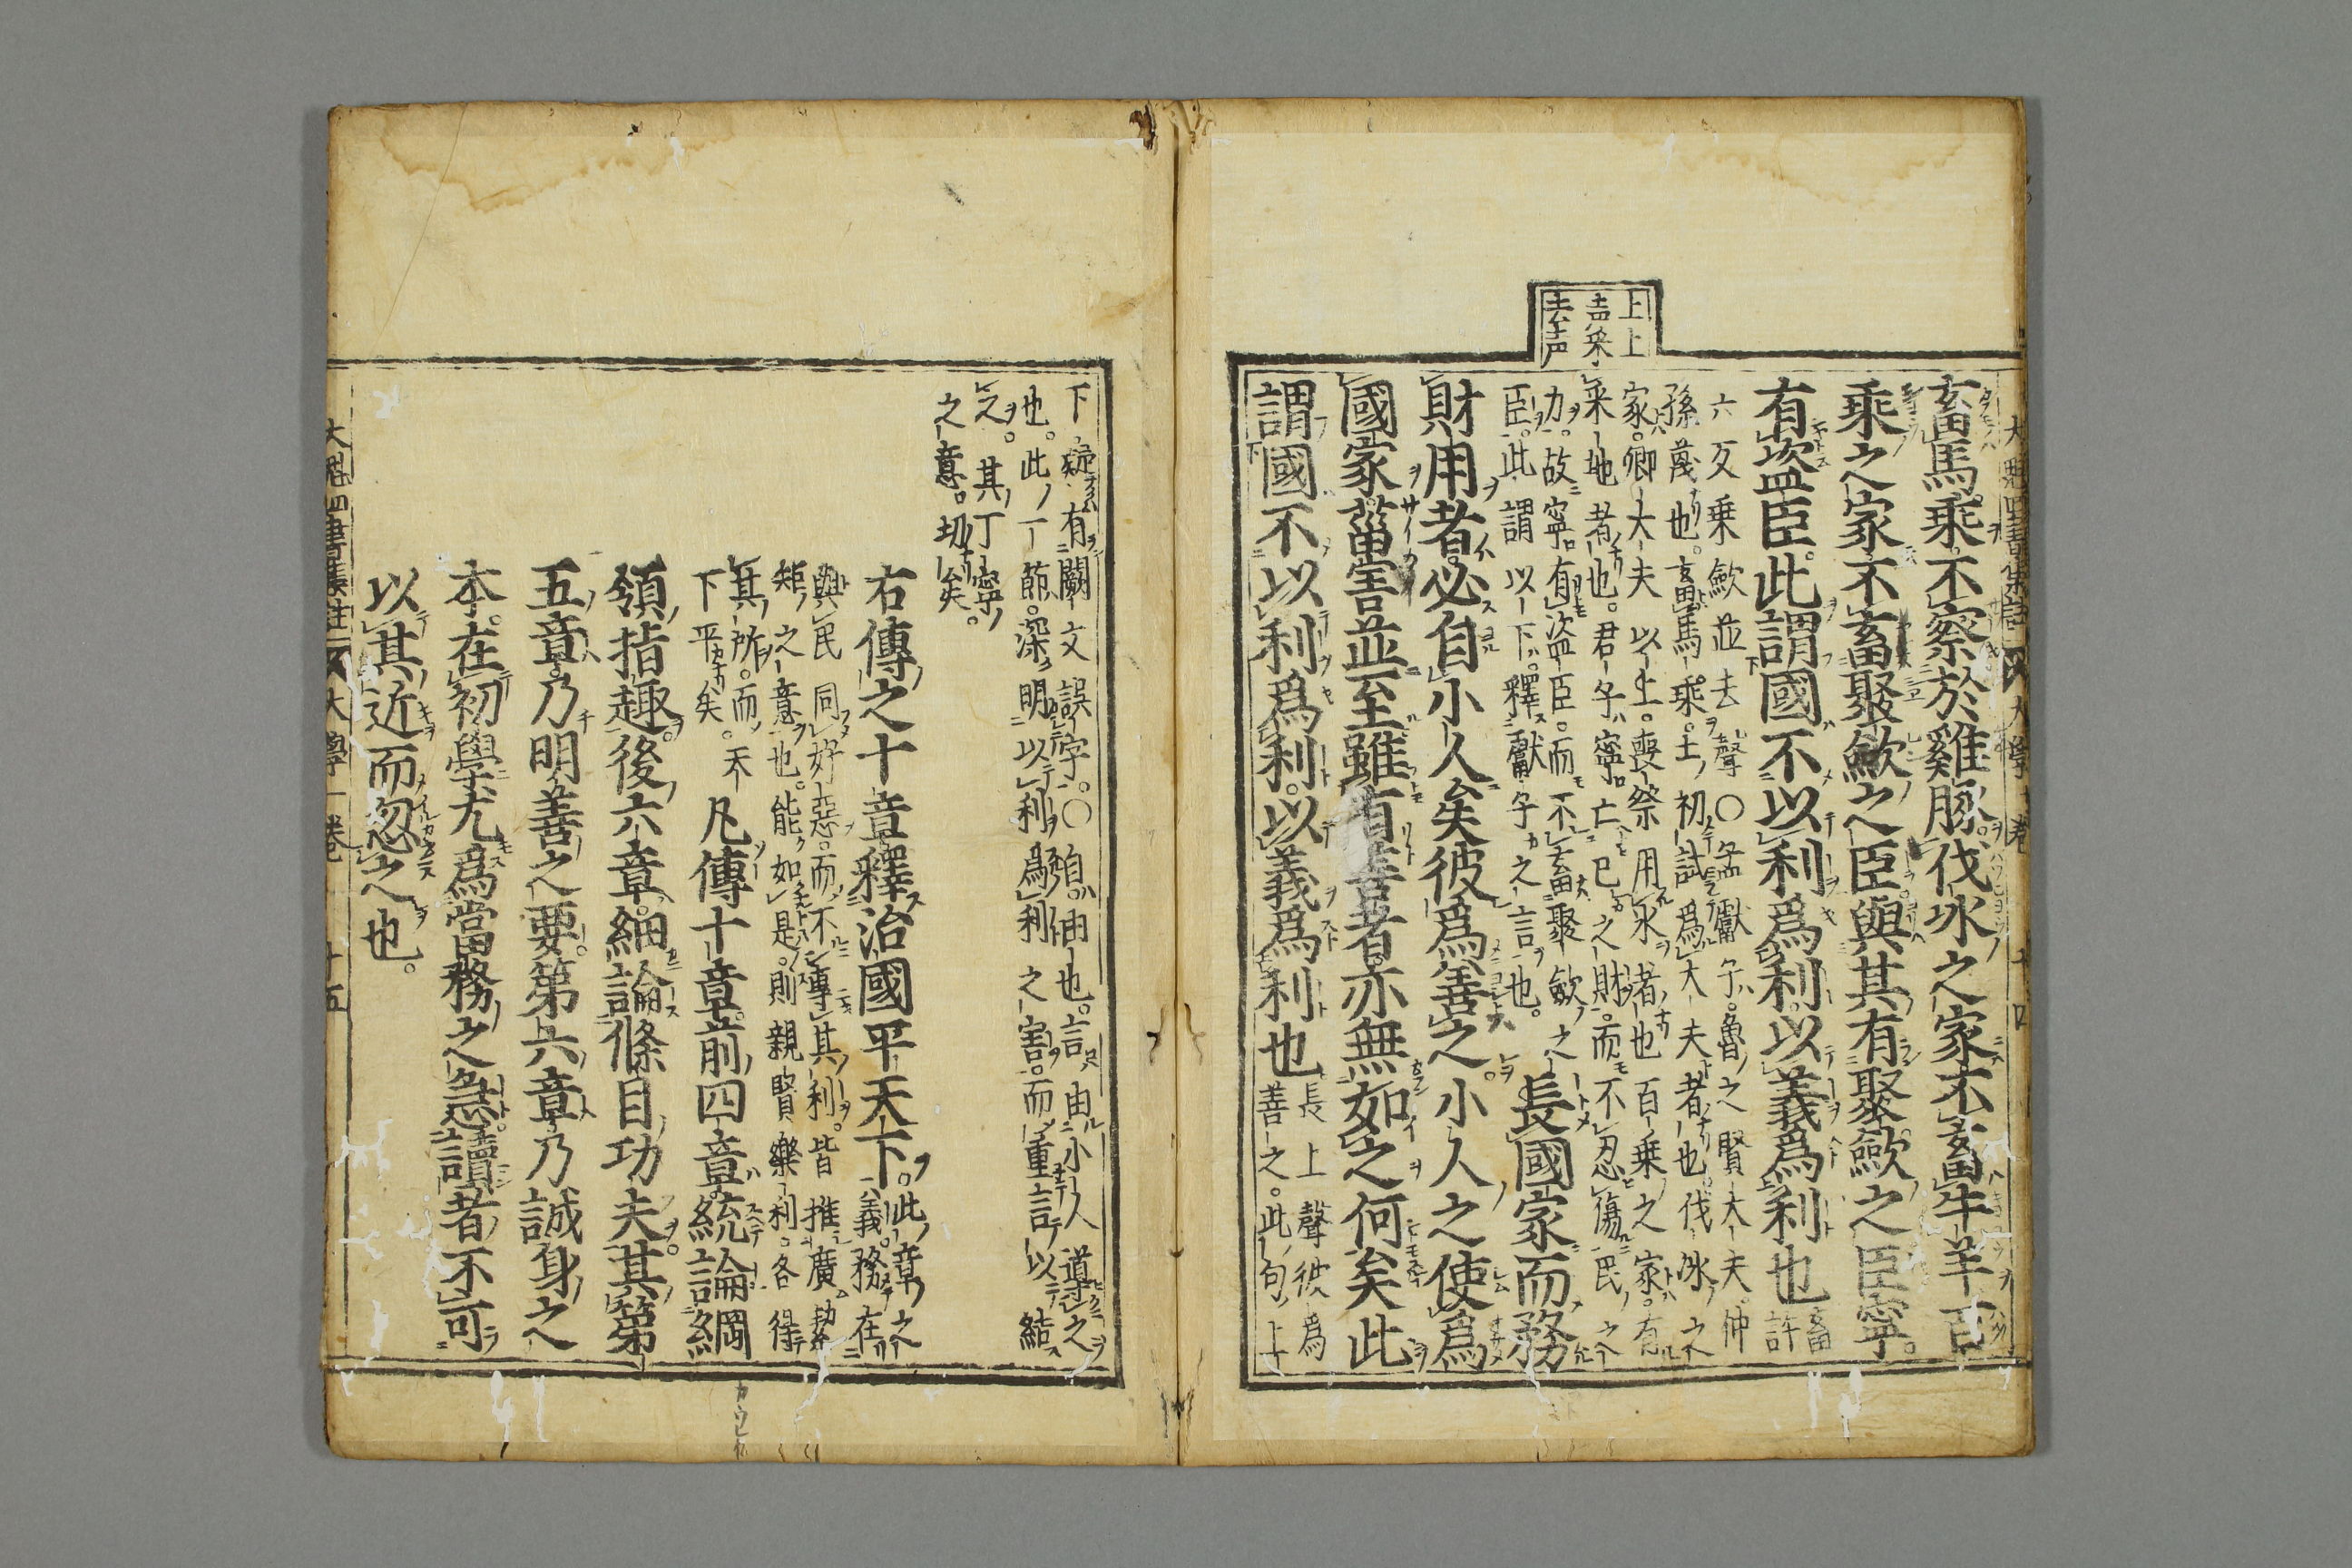 大魁四書集註 大學一卷 十四
畜馬乘不察於雞豚伐冰之家不畜牛羊百
乘之家不畜聚歛之臣與其有聚歛之臣寧
有盗臣此謂國不以利爲利以義爲利也 畜許
六反乗歛並去聲○孟獻子魯之賢大夫仲
孫蔑也畜馬乘士初試爲大夫者也伐冰之
家卿大夫以上喪祭用氷者也百乗之家有
采地者也君子寧亡己之財而不忍傷民之
力故寧有盗臣而不畜聚歛之
臣此謂以下釋獻子之言也
上上
去声
長國家而務
財用者必自小人矣彼爲善之小人之使爲
國家菑害並至雖有善者亦無如之何矣此
謂國不以利爲利以義爲利也 長上聲彼爲
善之此句上
下疑有闕文誤字○自由也言由小人導之
也此一節深明以利爲利之害而重言以結
之其丁寧
之意切矣
右傳之十章釋治國平天下 此章之
義務在
與民同好惡而不專其利皆推廣絜
矩之意也能如是則親賢樂利各得
其所而天
下平矣
凡傳十章前四章統論綱
領指趣後六章細論條目功夫其第
五章乃明善之要第六章乃誠身之
本在初學尤爲當務之急讀者不可
以其近而忽之也
大魁四書集註 大學一卷 十五